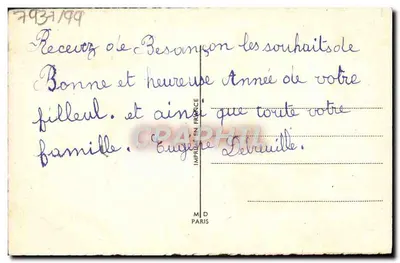 7937/99
Recevez de Besançon les souhaits de
Bonne et heureuse Année de votre
filleul. et ainsi que toute votre
famille. Eugène Debeuille.
IMPRIMÉ EN FRANCE
M D
PARIS